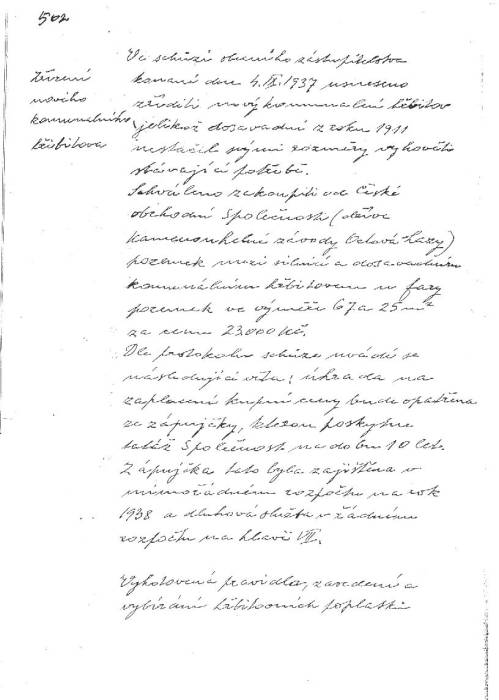 502
Zřízení
nového
komunálního
hřbitova
Ve schůzi obecního zastupitelstva
konané dne 4.IX.1937 usneseno
zříditi nový komunální hřbitov
jelikož dosavadní z roku 1911
nestačil svými rozměry vyhověti
stávající potřebě.
Schváleno zakoupiti od České
obchodní Společnosti (dříve
Kamenouhelné závody Orlová-Lazy)
pozemek mezi silnicí a dosavadním
komunálním hřbitovem u fary
pozemek ve výměře 67 a 25 m²
za cenu 23.000 Kč.
Dle protokolu schůze uvádí se
následující věta: úhrada na
zaplacení kupní ceny bude opatřena
ze zápůjčky, kterou poskytne
tatáž Společnost na dobu 10 let.
Zápůjčka tato byla zajištěna v
mimořádném rozpočtu na rok
1938 a dluhová služba v řádném
rozpočtu na hlavě VII.
Vyhotovená pravidla, zavedení a
vybírání hřbitovních poplatků